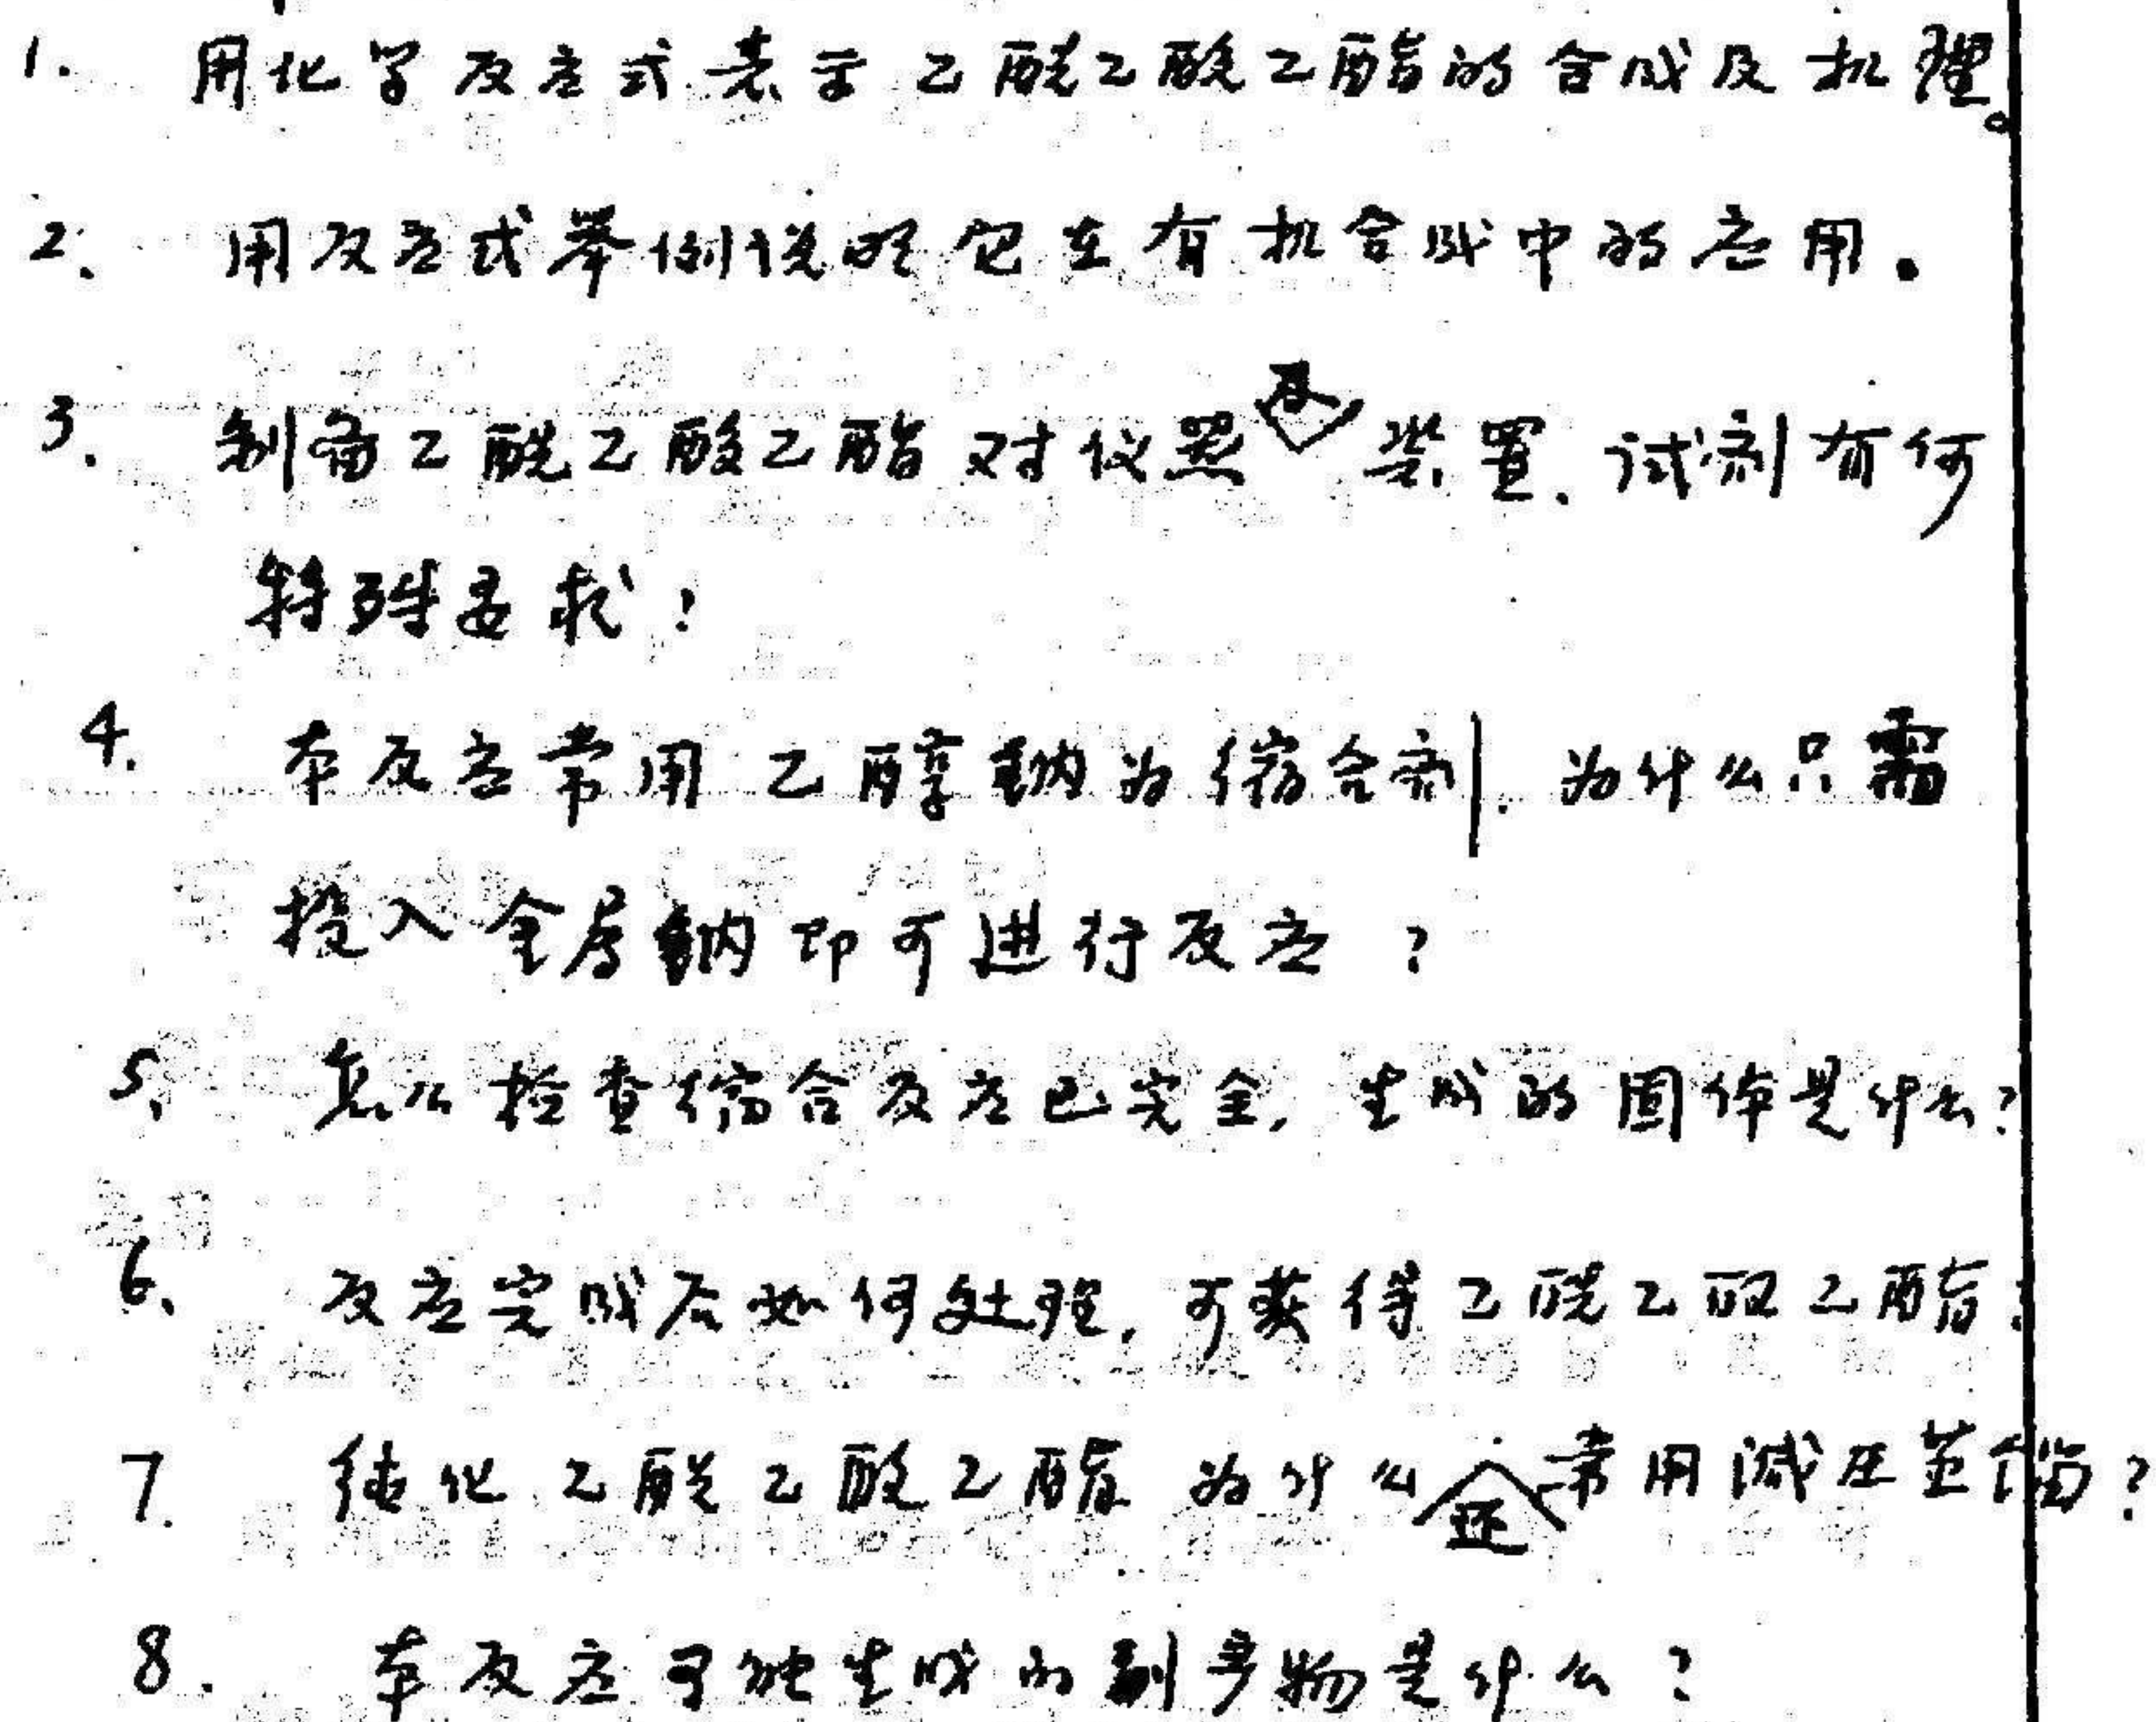 1. 用化学反应式表示乙酰乙酸乙酯的合成及机理。
2. 用反应式举例说明它在有机合成中的应用.
3. 制备乙酰乙酸乙酯对仪器及装置、试剂有何
特殊要求?
4. 本反应常用乙醇钠为缩合剂.为什么只需
投入金属钠即可进行反应?
5. 怎么检查缩合反应已完全,生成的固体是什么?
6. 反应完成后如何处理,可获得乙酰乙酸乙酯?
7. 纯化乙酰乙酸乙酯为什么常用减压蒸馏?
8. 本反应可能生成的副产物是什么?